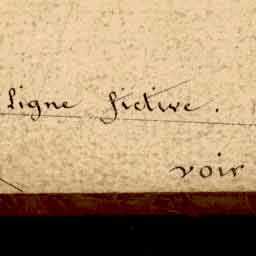 ligne fictive.
voir